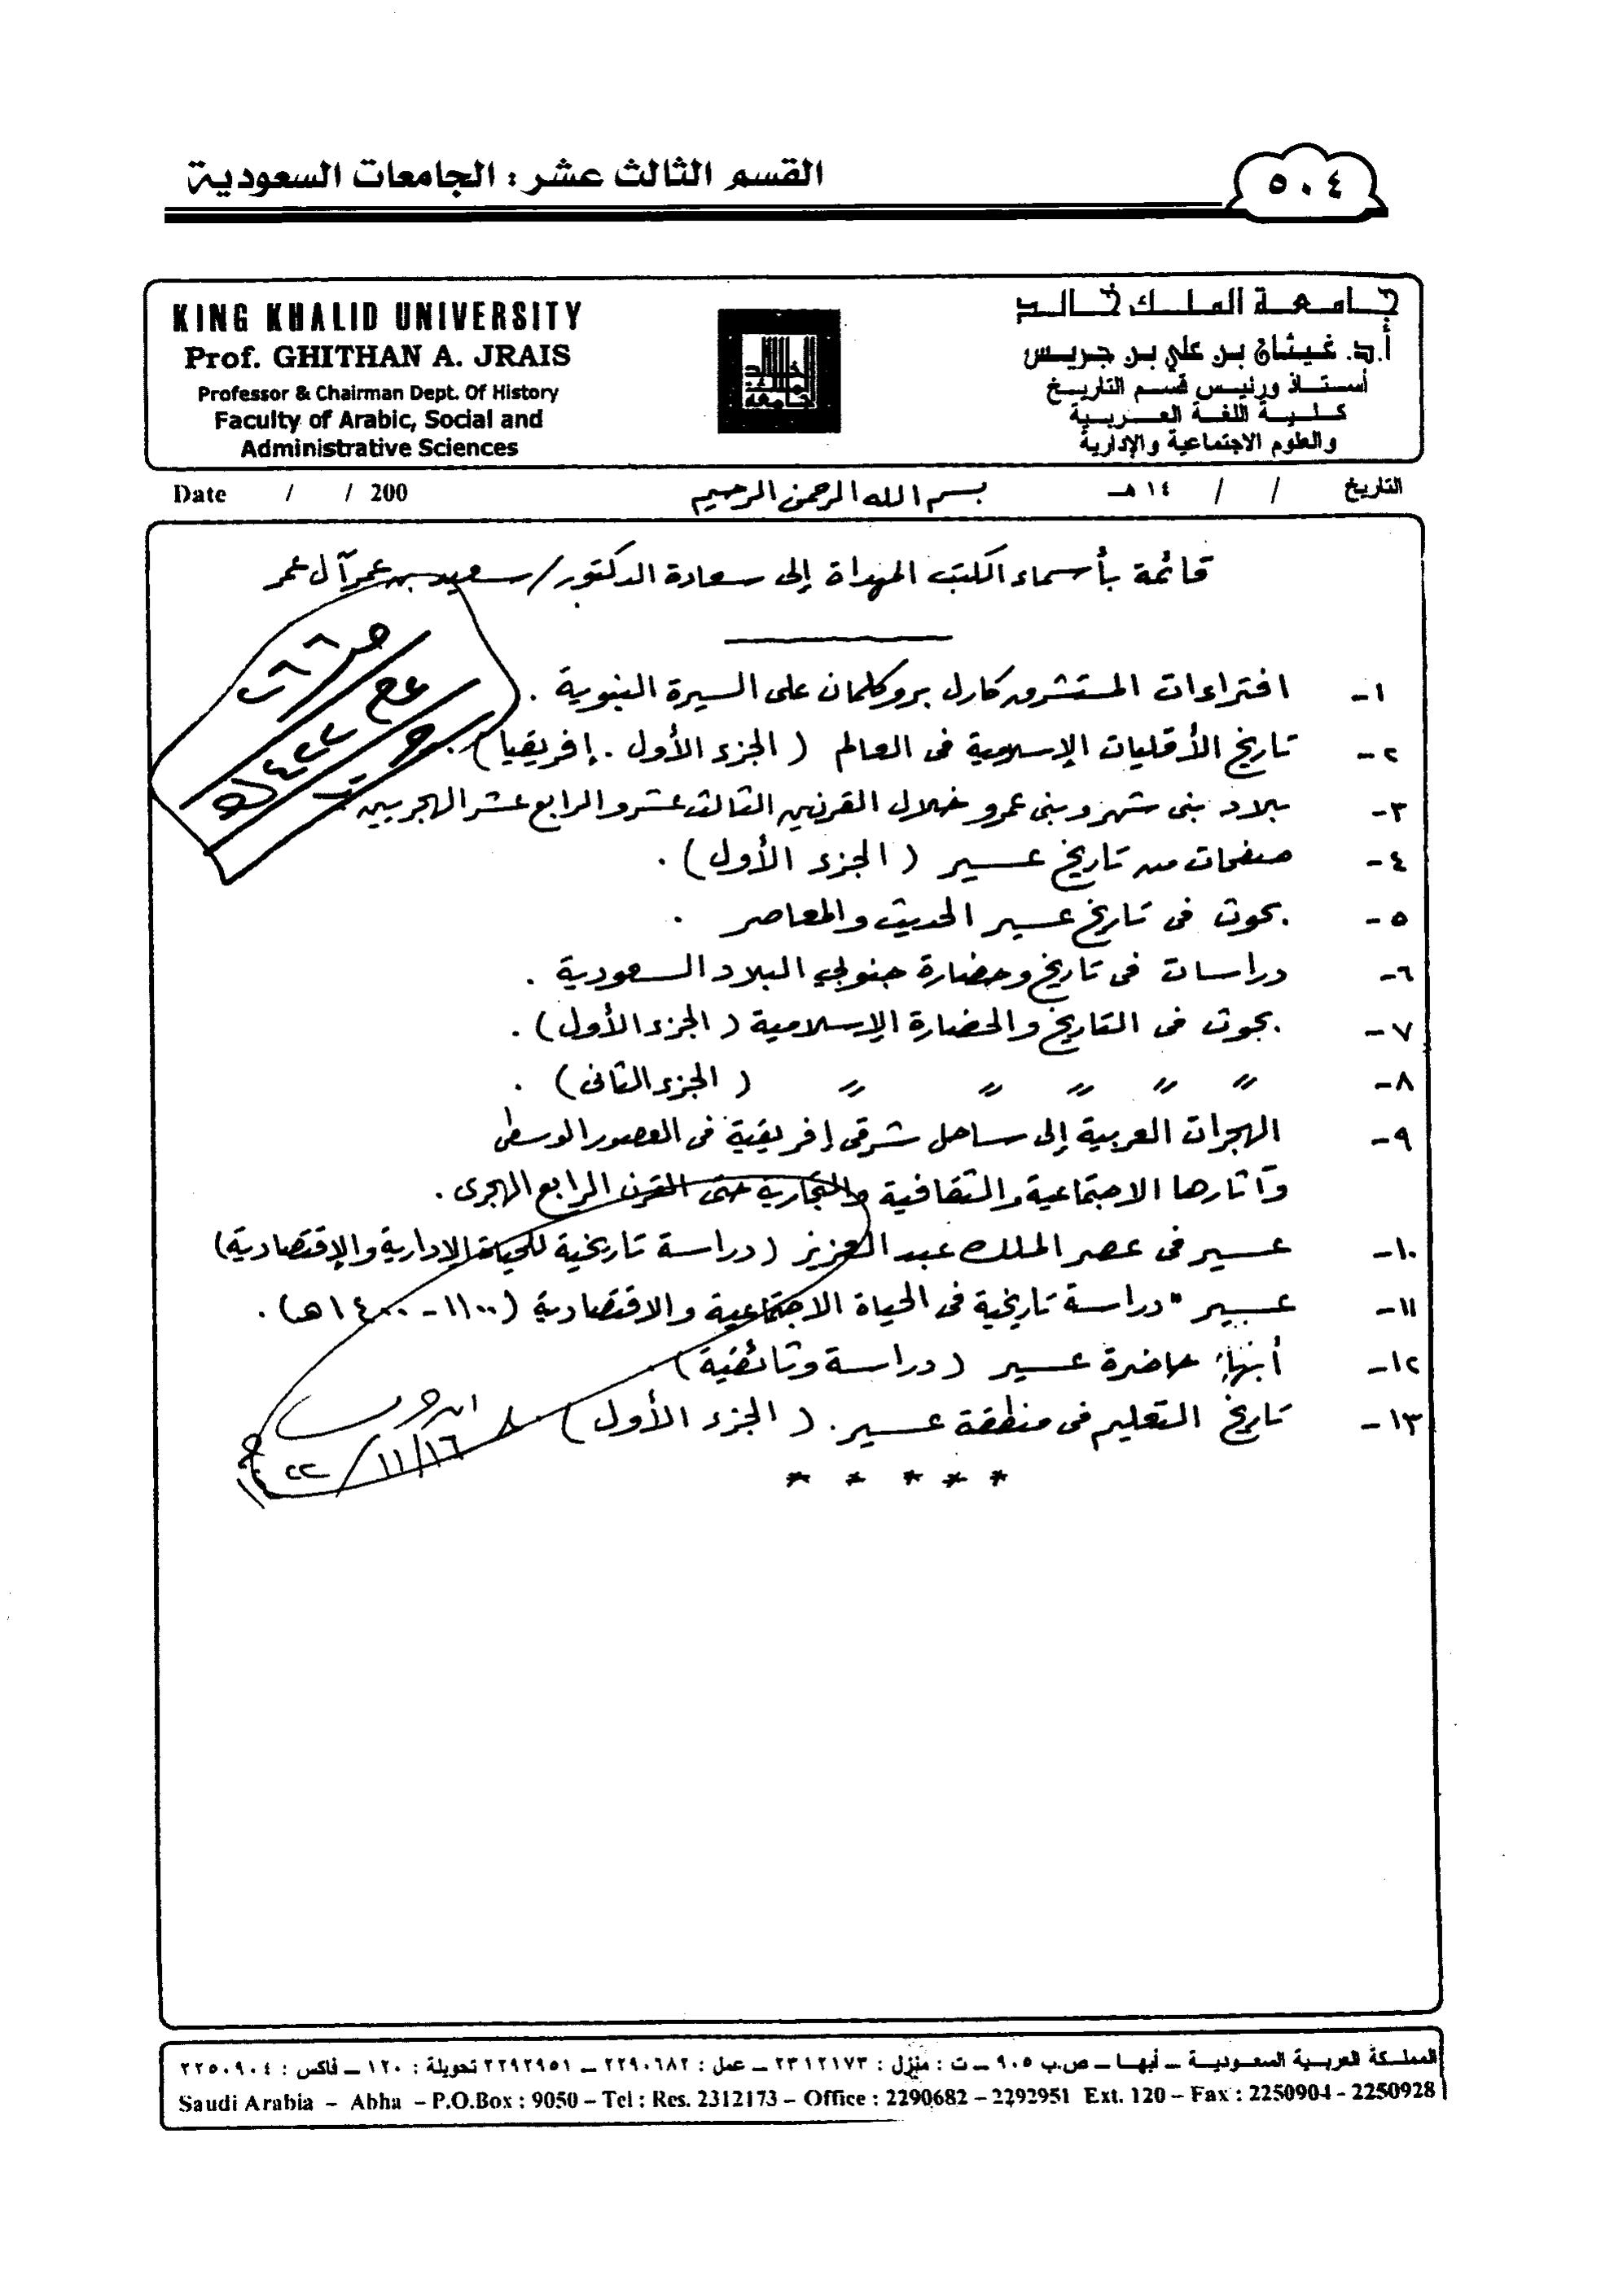 القسم الثالث عشر : الجامعات السعودية
٥٠٤
KING KHALID UNIVERSITY
Prof. GHITHAN A. JRAIS
Professor & Chairman Dept. Of History
Faculty of Arabic, Social and
Administrative Sciences
جامعة الملك خالد
أ.د. غيثان بن علي بن جريس
أستاذ ورئيس قسم التاريخ
كلية اللغة العربية
والعلوم الاجتماعية والإدارية
التاريخ / / ١٤هـ
بسم الله الرحمن الرحيم
Date / / 200
قائمة بأسماء الكتب المهداة إلى سعادة الدكتور/ سعيد بن عمر آل عمر
١- افتراءات المستشرق كارل بروكلمان على السيرة النبوية .
٢- تاريخ الأقليات الإسلامية فى العالم ( الجزء الأول . إفريقيا ) .
٣- بلاد بنى شهر وبنى عمرو خلال القرنين الثالث عشر والرابع عشر الهجريين
٤- صفحات من تاريخ عسير ( الجزء الأول ) .
٥- بحوث فى تاريخ عسير الحديث والمعاصر .
٦- دراسات فى تاريخ وحضارة جنوبي البلاد السعودية .
٧- بحوث فى التاريخ والحضارة الإسلامية ( الجزء الأول ) .
٨- 〃 〃 〃 〃 〃 ( الجزء الثانى ) .
٩- الهجرات العربية إلى ساحل شرقى إفريقية فى العصور الوسطى
وآثارها الاجتماعية والثقافية والتجارية حتى القرن الرابع الهجرى .
١٠- عسير فى عصر الملك عبد العزيز ( دراسة تاريخية للحياة الإدارية والإقتصادية )
١١- عسير " دراسة تاريخية فى الحياة الاجتماعية والاقتصادية ( ١١٠٠ - ١٤٠٠هـ ) .
١٢- أبها حاضرة عسير ( دراسة وثائقية )
١٣- تاريخ التعليم فى منطقة عسير . ( الجزء الأول )
* * * * *
١٦/١١/٢٢
المملكة العربية السعودية – أبها – ص.ب ٩٠٥ – ت : منزل : ٢٣١٢١٧٣ – عمل : ٢٢٩٠٦٨٢ – ٢٢٩٢٩٥١ تحويلة : ١٢٠ – فاكس : ٢٢٥٠٩٠٤
Saudi Arabia – Abha – P.O.Box : 9050 – Tel : Res. 2312173 – Office : 2290682 – 2292951 Ext. 120 – Fax : 2250904 - 2250928